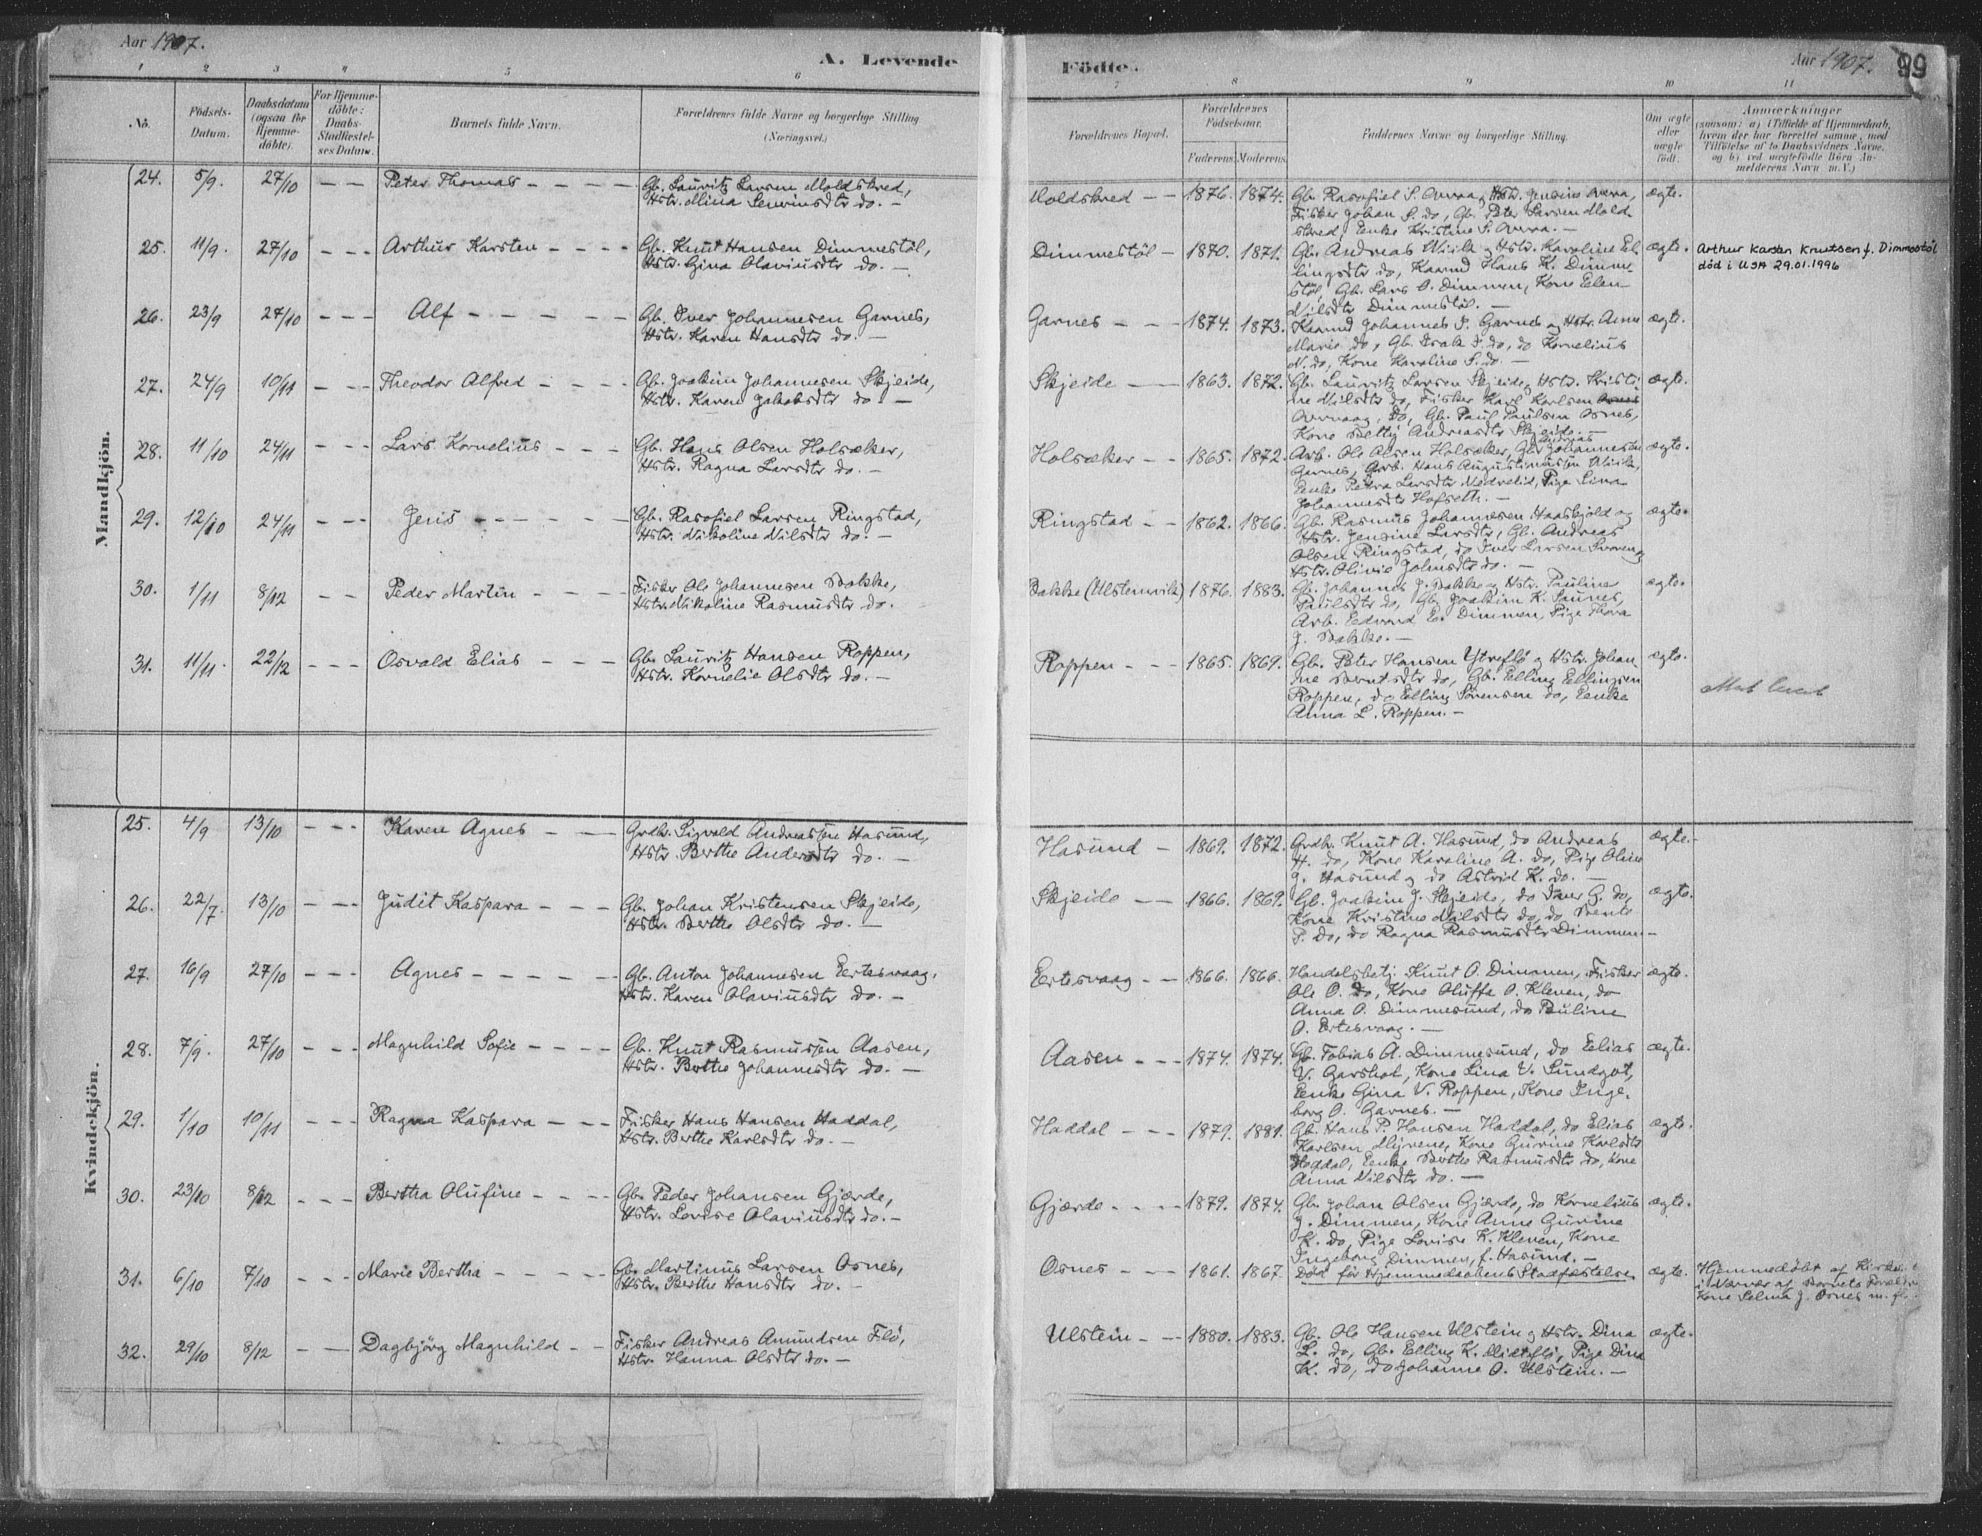 Aar 1907.
A. Levende
Fødte.
Aar 1907.
99
1 2 3 4 5 6 7 8 9 10 11
No.
Fødsels-
Datum.
Daabsdatum
(ogsaa for
Hjemme-
døbte).
For Hjemme-
døbte:
Daabs-
Stadfæstel-
ses Datum.
Barnets fulde Navn.
Forældrenes fulde Navne og borgerlige Stilling
(Næringsvei.)
Forældrenes Bopæl.
Forældrenes
Fødselsaar.
Faderens. Moderens.
Faddernes Navne og borgerlige Stilling.
Om ægte
eller
uægte
født.
Anmærkninger
(saasom: a) i Tilfælde af Hjemmedaab,
hvem der har forrettet samme, med
Tilføielse af to Daabsvidners Navne,
og b) ved uægtefødte Børn An-
melderens Navn m. V.)
Mandkjön.
24. 5/9. 27/10 — — Peter Thomas — — — — Gb. Lauritz Larsen Moldskred,
Hstr. Mina Sevrinsdtr do. —
Moldskred — — 1876. 1874. Gb. Rasofiel S. Overaa, Hstr. Jensine Overaa, ægte.
Fisker Johan S. do, Gb. Peter Larsen Mold-
skred, Enke Kristine S. Overaa. —
25. 11/9. 27/10 — — — Arthur Karsten — — — — Gb. Knut Hansen Dimmestøl,
Hstr. Gina Olaviusdtr do. —
Dimmestøl — 1870. 1871. Gb. Andreas Vik og Hstr. Karoline El- ægte.
lingsdtr do, Kaarmd Hans K. Dimme-
støl, Gb. Lars O. Dimmen, Kone Elen
Nilsdtr Dimmestøl. —
Arthur Karsten Knutsen f. Dimmestøl
död i USA 29.01.1996
26. 23/9 27/10 — — — Alf — — — — — Gb. Iver Johannesen Garnes,
Hstr. Karen Hansdtr do. —
Garnes — — — 1874. 1873. Kaarmd Johannes I. Garnes og Hstr. Anne ægte.
Marie do, Gb. Isak I. do, do Kornelius
N. do, Kone Karoline S. do. —
27. 24/9 10/11 — — — Theodor Alfred — — — — Gb. Joakim Johannesen Skjeide,
Hstr. Karen Jakobsdtr do —
Skjeide — — 1863. 1872. Gb. Lauritz Larsen Skjeide, Hstr. Kristi- ægte.
ne Nilsdtr do, Fisker Karl Karlsen
Overaag, do, Gb. Paul Paulsen Osnes,
Kone Betty Andreasdtr Skjeide. —
28. 11/10 24/11 — — — Lars Kornelius — — — Gb. Hans Olsen Holsæker,
Hstr. Ragna Larsdtr do. —
Holsæker — — 1865. 1872. Arb. Ole Olsen Holsæker, Gb. Andreas Johannesen ægte.
Garnes, Arb. Hans Augustinussen Vik,
Enke Petra Larsdtr Nedrelid, Pige Lina
Johannesdtr Hofseth. —
29. 12/10 24/11 — — — Jens — — — — — Gb. Rasofiel Larsen Ringstad,
Hstr. Nikoline Nilsdtr do. —
Ringstad — — 1862. 1866. Gb. Rasmus Johannesen Haaskjold og ægte.
Hstr. Jensine Larsdtr, Gb. Andreas
Olsen Ringstad, do Iver Larsen
Hstr. Olivie Johnsdtr do. —
30. 1/11 8/12 — — Peder Martin — — — — Fisker Ole Johannesen Bakke,
Hstr. Nikoline Rasmusdtr do.
Bakke (Ulstenvik) 1876. 1883. Gb. Johannes J. Bakke, Hstr. Pauline ægte.
Paulsdtr do, Gb. Joakim K. Saunes,
Arb. Edvard E. Dimmen, Pige Thora
J. Bakke. —
31. 11/11. 22/12 — — — Osvald Elias — — — Gb. Lauritz Hansen Roppen,
Hstr. Kornelie Olsdtr do. —
Roppen — — — 1865. 1869. Gb. Peter Hansen Ytreflø og Hstr. Johan- ægte.
ne Berntsdtr do, Gb. Elling Ellingsen
Roppen, do Elling Sørensen do, Enke
Anna L. Roppen. —
Kvindekjön.
25. 4/9 13/10 — — — Karen Agnes — — — Grdbr. Sigvald Andreassen Hasund,
Hstr. Berthe Andersdtr do. —
Hasund — 1869. 1872. Grdbr. Knut A. Hasund, do Andreas ægte. —
H. do, Kone Karoline A. do, Pige Oline
J. Hasund og do Astrid K. do. —
26. 22/7. 13/10 — — — Judit Kaspara — — — Gb. Johan Kristensen Skjeide,
Hstr. Berthe Olsdtr do. —
Skjeide — — 1866. 1869. Gb. Joakim J. Skjeide, do Iver G. do, ægte.
Kone Kristine Nilsdtr do, do Bente
P. do, do Ragna Rasmusdtr Dimmen —
27. 16/9 27/10 — — — Agnes — — — — — Gb. Anton Johannesen Eertesvaag,
Hstr. Karen Olaviusdtr do. —
Eertesvaag — — 1866. 1866. Handelsbetj. Knut O. Dimmen, Fisker ægte.
Ole O. do, Kone Oluffa O. Kleven, do
Anna O. Dimmesund, do Pauline
O. Ertesvaag. —
28. 7/9. 27/10 — — — Magnhild Sofie — — — — Gb. Knut Rasmussen Aasen,
Hstr. Berthe Johannesdtr do. —
Aasen — — — 1874. 1874. Gb. Tobias A. Dimmesund, do Elias ægte.
V. Garshol, Kone Lina V. Sundgot,
Enke Gina V. Roppen, Kone Inge-
borg O. Garnes. —
29. 1/10 10/11 — — — Ragna Kaspara — — — Fisker Hans Hansen Haddal,
Hstr. Berthe Karlsdtr do. —
Haddal — — — 1879. 1881. Gb. Hans P. Hansen Haddal, do Elias ægte.
Karlsen Myrene, Kone Gurine Karlsdtr
Haddal, Enke Berthe Rasmusdtr do, Kone
Anna Nilsdtr do. —
30. 23/10 8/12 — — — Bertha Olufine — — — — Gb. Peder Johansen Gjærde,
Hstr. Lovise Olaviusdtr do. —
Gjærde — — — — 1879. 1874. Gb. Johan Olsen Gjærde, do Kornelius ægte.
J. Dimmen, Kone Anne Gurine
K. do, Pige Lovise K. Kleven, Kone
Ingeborg Dimmen, f. Hasund. —
31. 6/10 7/10 — — — Marie Bertha — — — — Gb. Martinus Larsen Osnes,
Hstr. Berthe Hansdtr do. —
Osnes — — — 1861. 1867. Død før Hjemmedaabens Stadfæstelse ægte.
Hjemmedøbt af
i Nærvær af Barnets Forældre
Kone Selma J. Osnes m. fl.
32. 29/10 8/12 — — Dagbjørg Magnhild — — Fisker Andreas Amundsen Flø,
Hstr. Hanna Olsdtr do. —
Ulstein — — 1880. 1883. Gb. Ole Hansen Ulstein og Hstr. Dina ægte.
L. do, Gb. Elling K. Midtflø, Pige Dina
K. do, do Johanne O. Ulstein. —